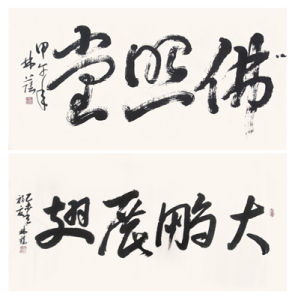 佛照堂
甲午年
林荫
大鹏展翅